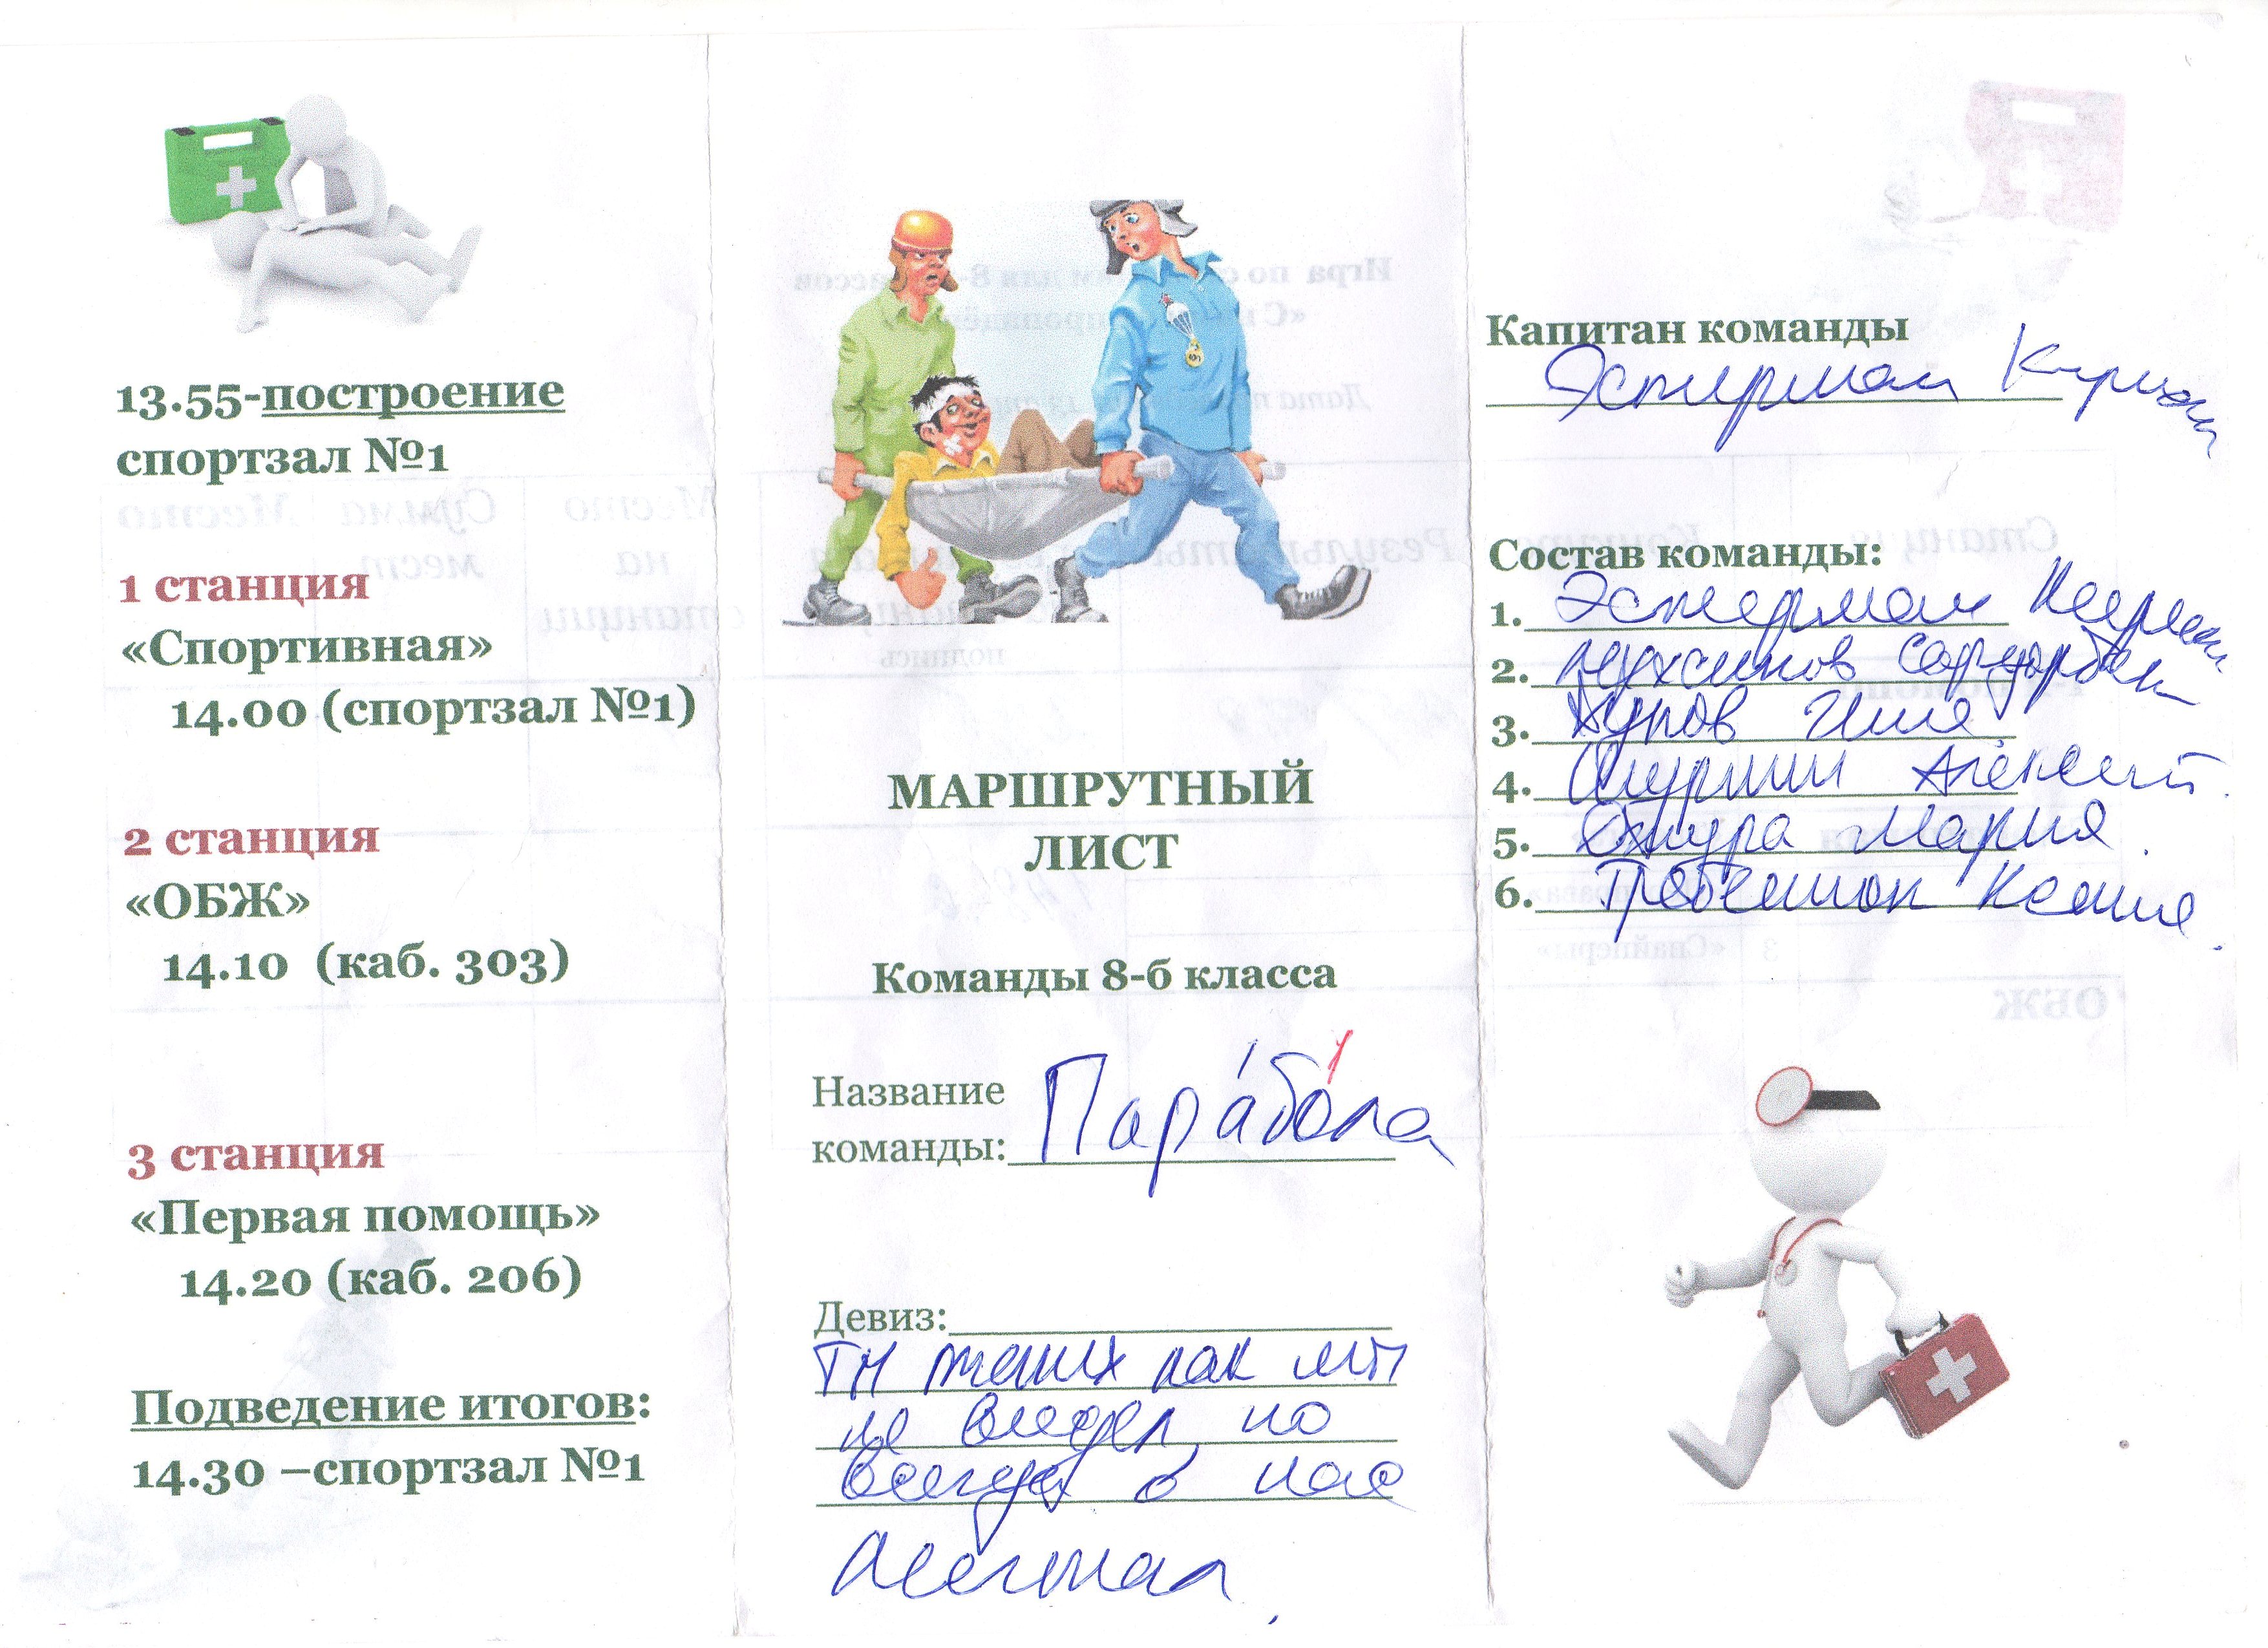 13.55-построение
спортзал №1
1 станция
«Спортивная»
14.00 (спортзал №1)
2 станция
«ОБЖ»
14.10 (каб. 303)
3 станция
«Первая помощь»
14.20 (каб. 206)
Подведение итогов:
14.30 –спортзал №1
МАРШРУТНЫЙ
ЛИСТ
Команды 8-б класса
Название
команды: Парабола
Девиз:
ты таких как мы
не видел, но
всегда о нас
мечтал
Капитан команды
Эстерман Кирилл
Состав команды:
1. Эстерман Кирилл
2. Мухсинов Сардорбек
3. Илья
4. Алексей
5. Мария
6. Ксения